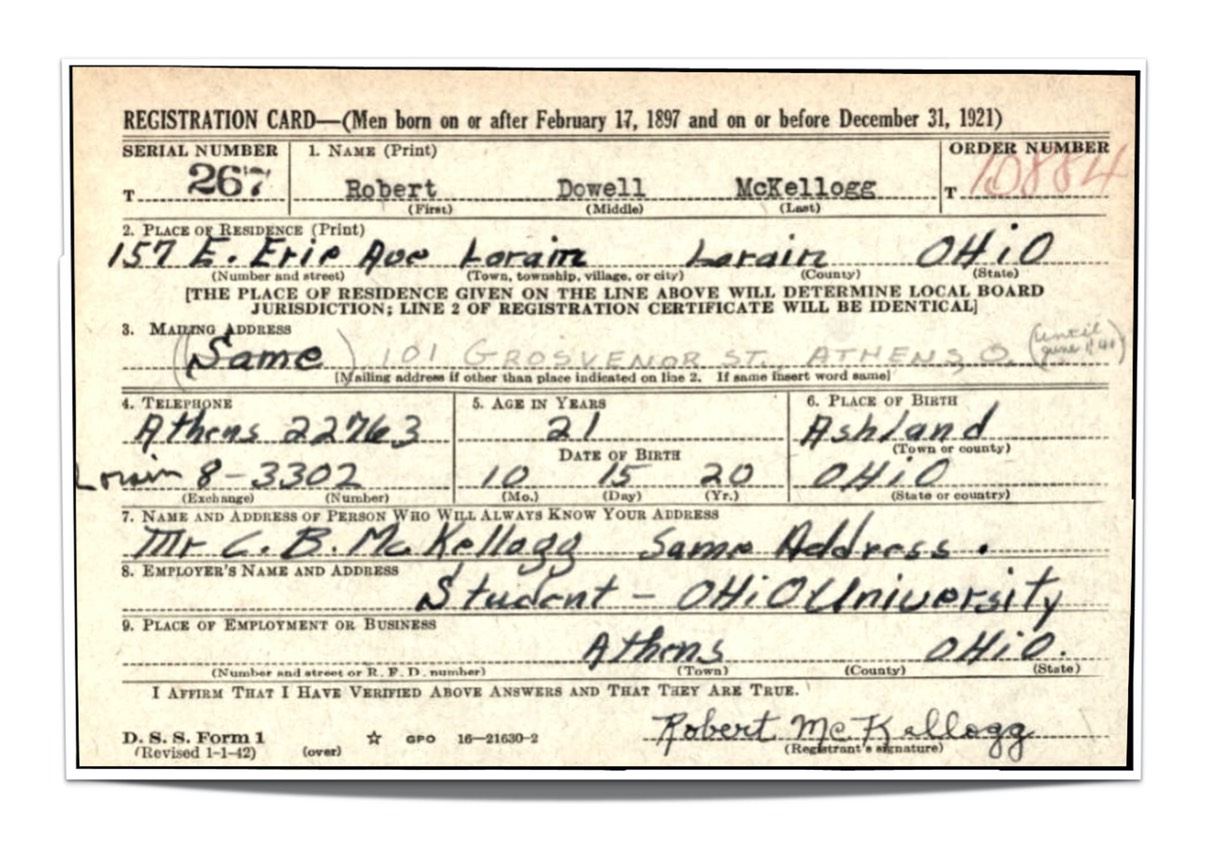 REGISTRATION CARD—(Men born on or after February 17, 1897 and on or before December 31, 1921)
SERIAL NUMBER 1. NAME (Print) ORDER NUMBER
T 267 Robert Dowell McKellogg T 10884
(First) (Middle) (Last)
2. PLACE OF RESIDENCE (Print)
157 E. Erie Ave Lorain Lorain OHiO
(Number and street) (Town, township, village, or city) (County) (State)
[THE PLACE OF RESIDENCE GIVEN ON THE LINE ABOVE WILL DETERMINE LOCAL BOARD
JURISDICTION; LINE 2 OF REGISTRATION CERTIFICATE WILL BE IDENTICAL]
3. MAILING ADDRESS
(Same) 101 GROSVENOR ST., ATHENS O. (until June
[Mailing address if other than place indicated on line 2. If same insert word same]
4. TELEPHONE 5. AGE IN YEARS 6. PLACE OF BIRTH
Athens 22763 21 Ashland
DATE OF BIRTH (Town or county)
Lorain 8-3302 10 15 20 OHiO
(Exchange) (Number) (Mo.) (Day) (Yr.) (State or country)
7. NAME AND ADDRESS OF PERSON WHO WILL ALWAYS KNOW YOUR ADDRESS
Mr C. B. McKellogg Same Address.
8. EMPLOYER'S NAME AND ADDRESS
Student - OHiO University
9. PLACE OF EMPLOYMENT OR BUSINESS
Athens OHiO.
(Number and street or R. F. D. number) (Town) (County) (State)
I AFFIRM THAT I HAVE VERIFIED ABOVE ANSWERS AND THAT THEY ARE TRUE.
Robert McKellogg
D. S. S. Form 1 ☆ GPO 16—21630-2 (Registrant's signature)
(Revised 1-1-42) (over)